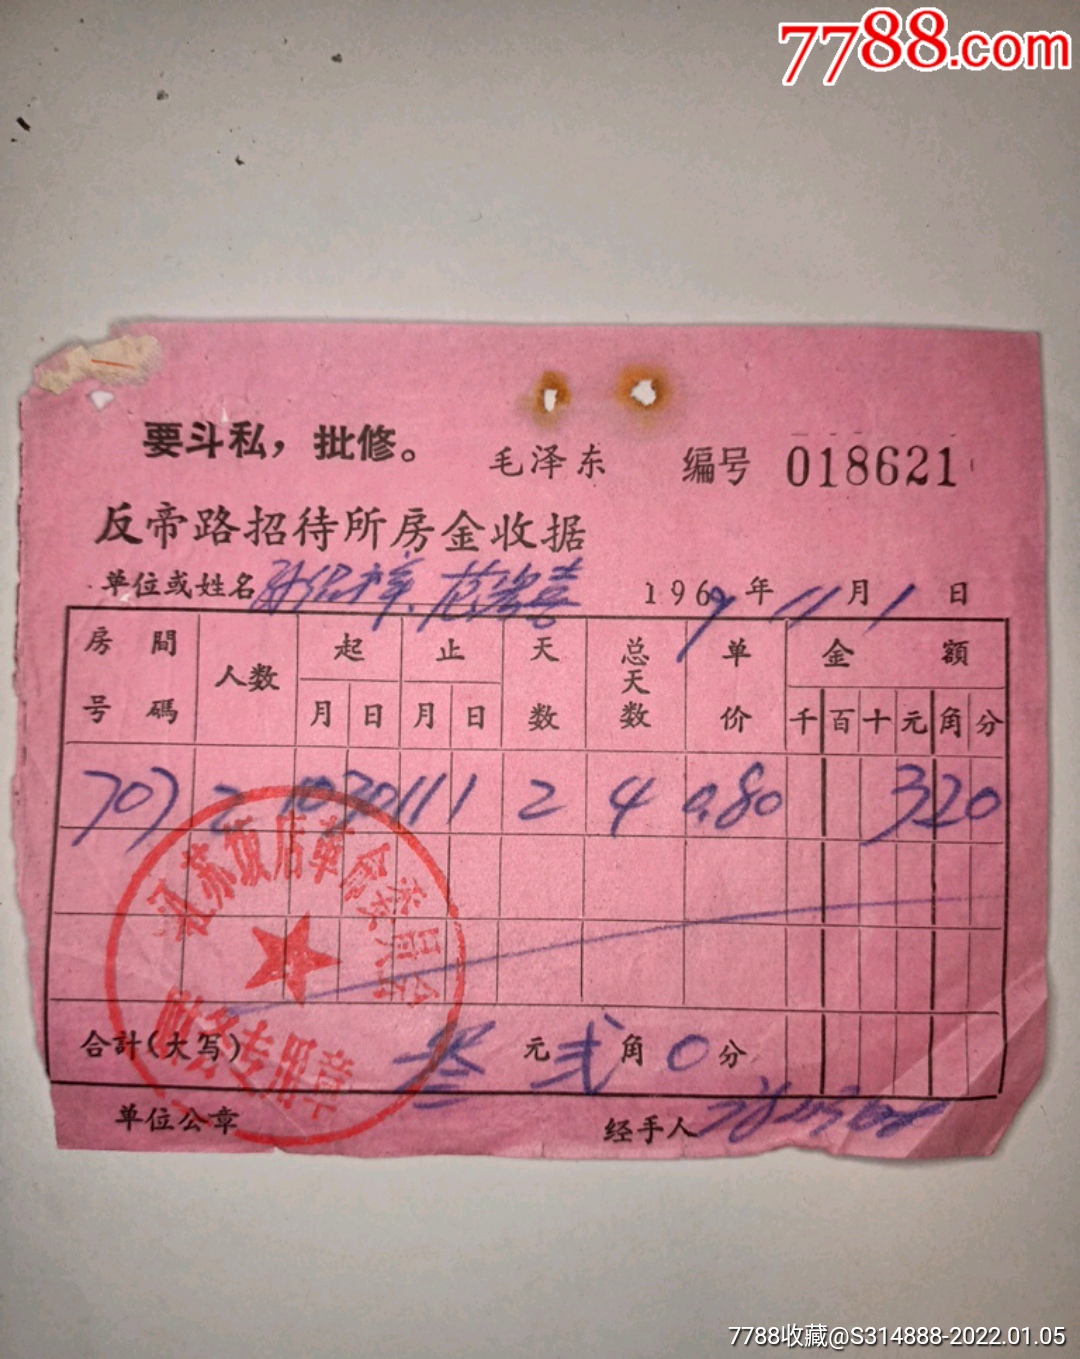 7788.com
要斗私，批修。
毛泽东 编号 018621
反帝路招待所房金收据
单位或姓名 1969年11月1日
房間号碼 人数 起 止 天数 总天数 单价 金額
月 日 月 日 千 百 十 元 角 分
707 2 10 30 11 1 2 4 0.80 3 2 0
江苏饭店革命委員会
财务专用章
合計(大写) 叁元弍角0分
单位公章 经手人
7788收藏@S314888-2022.01.05